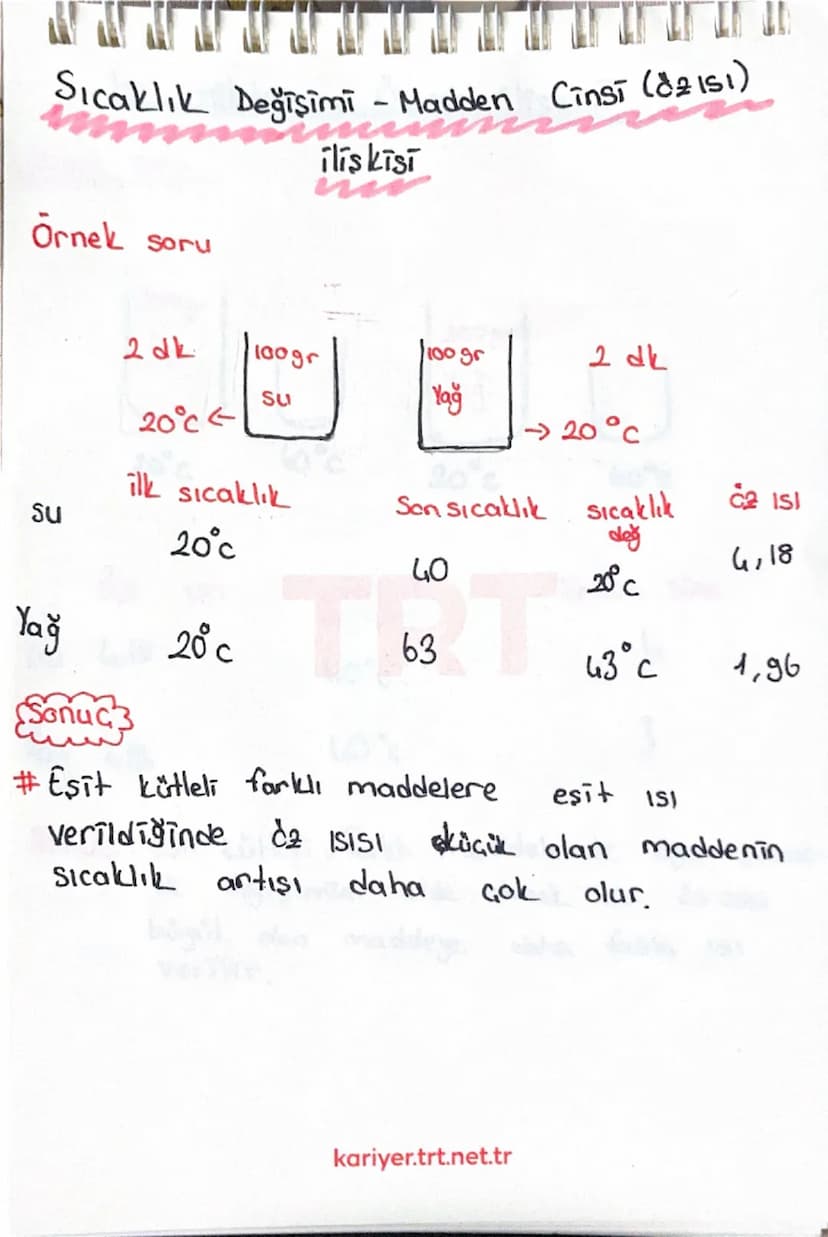 Sıcaklık Değişimi - Madden Cinsi (öz ısı)
ilişkisi
Örnek soru
2 dk 100gr 100gr 2 dk
su Yağ
20°c ← → 20°C
ilk sıcaklık Son sıcaklık sıcaklık değ öz ısı
su 20°c 40 20°c 4,18
Yağ 20°c 63 43°c 1,96
TRT
Sonuç
# Eşit kütleli farklı maddelere eşit ısı
verildiğinde öz ısısı küçük olan maddenin
sıcaklık artışı daha çok olur.
kariyer.trt.net.tr